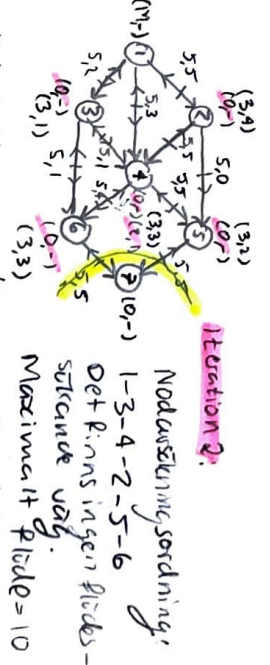 Iteration 2:
Nodavsökningsordning:
1-3-4-2-5-6
Det finns ingen flödes-
ökande väg.
Maximalt flöde = 10
(M,-)
1
5,5
5,3
5,2
2
(3,4)
(0,-)
3
(0,-)
(3,1)
5,0
5,5
5,5
5,1
4
(3,3)
5,1
5
(3,2)
(0,-)
6
(0,-)
(3,3)
5,5
5,5
7
(0,-)